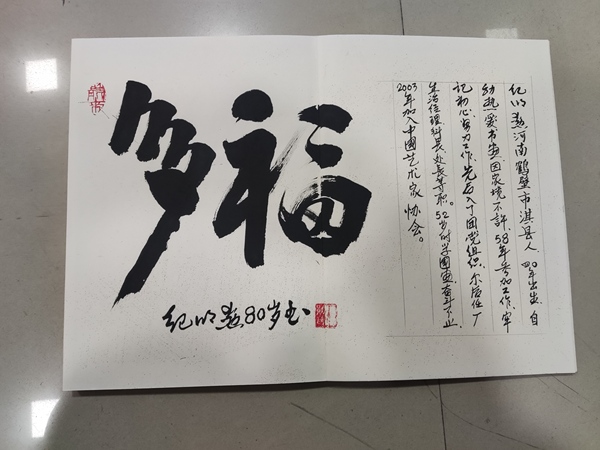 多福
纪明80岁书
纪明河南鹤壁市淇县人，40年出生，自
幼热爱书画，因家境不許，58年参加工作，牢
记初心，努力工作，先后入了团党组织，尔后任厂
生活管理科长、处长等职。52岁时学國画，奋斗不止，
2003年加入中國艺术家协会。